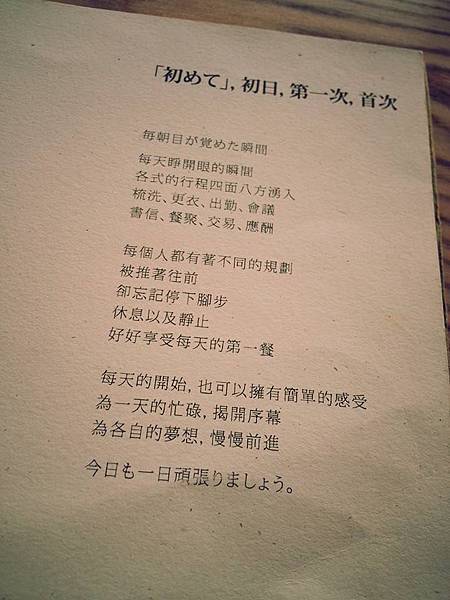 「初めて」,初日,第一次,首次
毎朝目が覚めた瞬間
每天睜開眼的瞬間
各式的行程四面八方湧入
梳洗、更衣、出勤、會議
書信、餐聚、交易、應酬
每個人都有著不同的規劃
被推著往前
卻忘記停下腳步
休息以及靜止
好好享受每天的第一餐
每天的開始,也可以擁有簡單的感受
為一天的忙碌,揭開序幕
為各自的夢想,慢慢前進
今日も一日頑張りましょう。